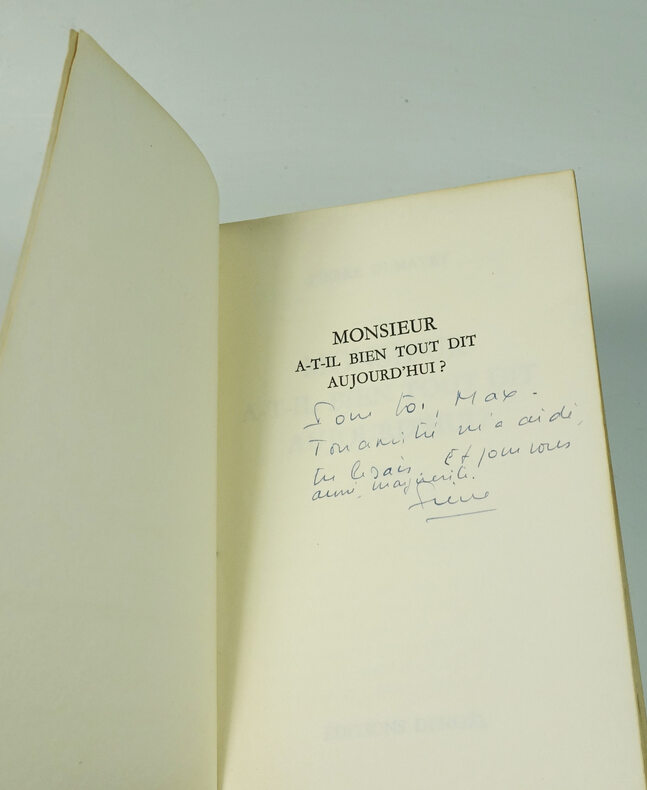 MONSIEUR
A-T-IL BIEN TOUT DIT
AUJOURD'HUI ?
Pour toi, Max.
Ton amitié m'a aidé,
tu le sais. Et pour vous
aussi, Marguerite.
Pierre
ÉDITIONS DENOËL